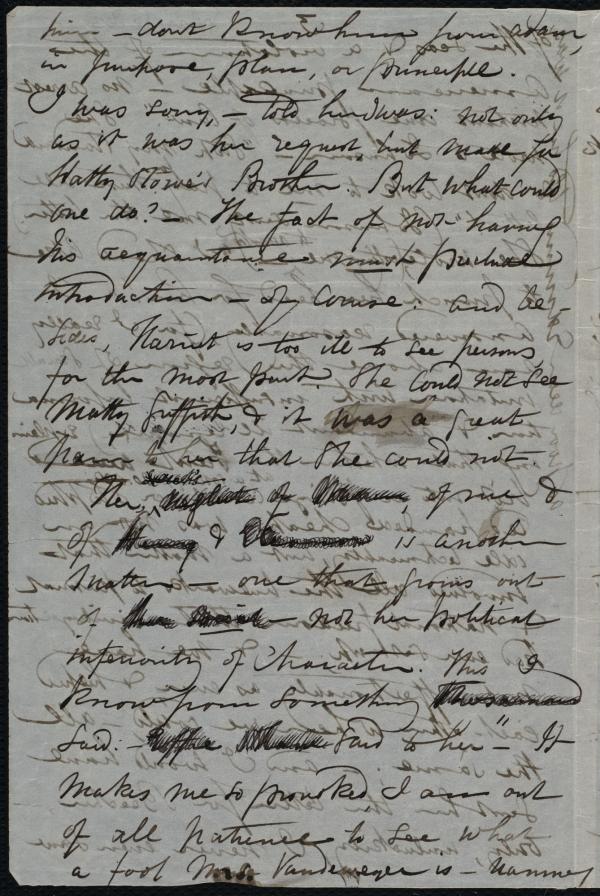 him — don't know him from Adam,
in purpose, plan, or principle.
I was sorry, — told her I was: not only
as it was her request, but make for
Hatty Rowe's Brother. But what could
one do? — The fact of not having
his acquaintance must preclude
introduction — of course. And be-
sides, Harriet is too ill to see persons
for the most part. She could not see
Matty Griffith, & it was a great
pain to her that she could not.
Her neglect of , of me &
of & is another
matter — one that grows out
of — not her political
inferiority of character. This I
know from something
said: — said to her" — It
makes me so provoked, I am out
of all patience to see what
a fool Mrs. Vandemeyer is —